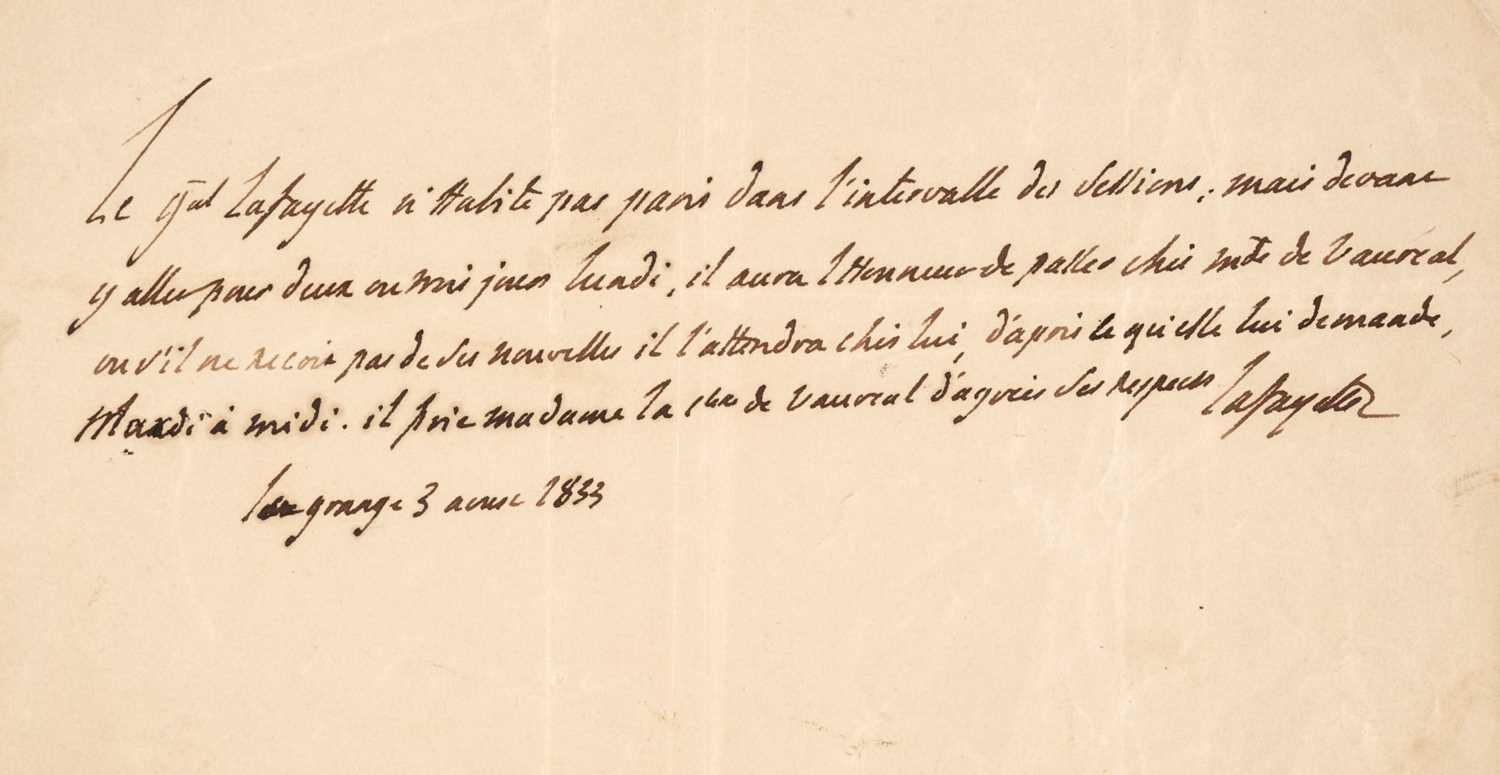 Le Gal Lafayette n'habite pas paris dans l'intervalle des sessions; mais devant
y aller pour deux ou trois jours lundi, il aura l'honneur de passer chés Mde de Vaureal,
ou s'il ne recoit pas de ses nouvelles il l'attendra chés lui, d'après ce qu'elle lui demande,
Mardi à midi. il prie madame la Ctesse de Vaureal d'agréer ses respects Lafayette
la grange 3 aoust 1833